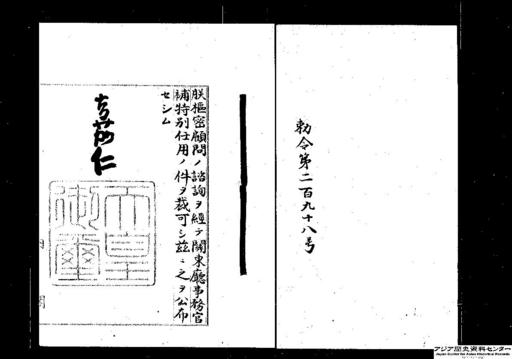 勅令第二百九十八号
朕樞密顧問ノ諮詢ヲ經テ關東廳事務官
補特別任用ノ件ヲ裁可シ茲ニ之ヲ公布
セシム
嘉仁
天皇御璽
内
閣
アジア歴史資料センター
Japan Center for Asian Historical Records